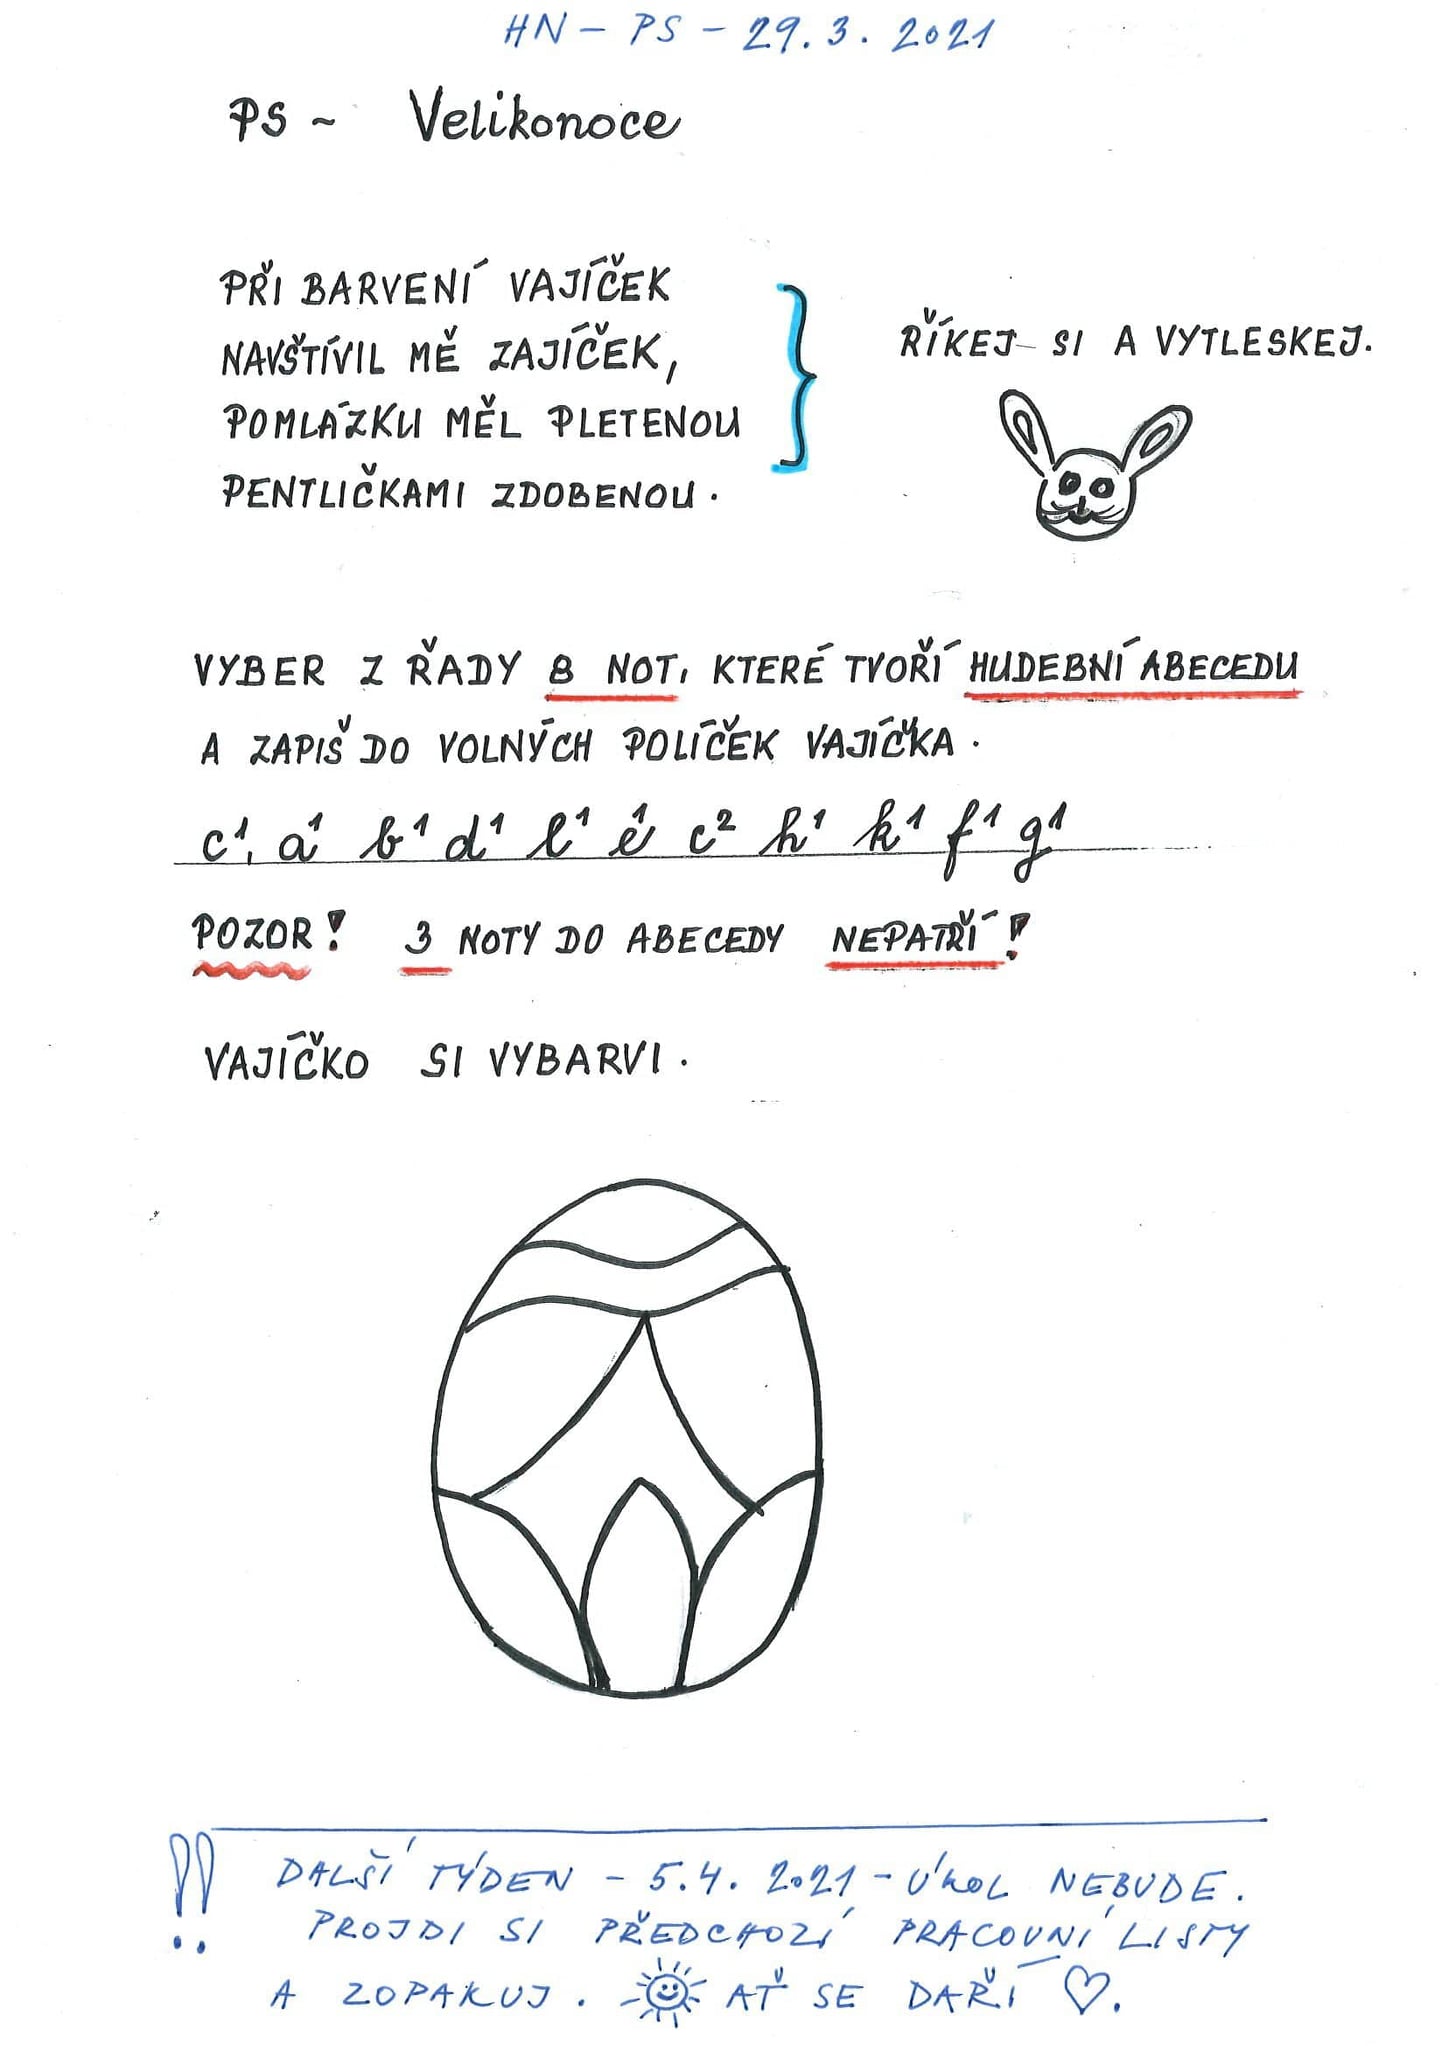 HN – PS – 29.3. 2021
PS ~ Velikonoce
PŘI BARVENÍ VAJÍČEK
NAVŠTÍVIL MĚ ZAJÍČEK,
POMLÁZKU MĚL PLETENOU
PENTLIČKAMI ZDOBENOU.
ŘÍKEJ SI A VYTLESKEJ.
VYBER Z ŘADY 8 NOT, KTERÉ TVOŘÍ HUDEBNÍ ABECEDU
A ZAPIŠ DO VOLNÝCH POLÍČEK VAJÍČKA.
c¹, a¹ b¹ d¹ l¹ e¹ c² h¹ k¹ f¹ g¹
POZOR! 3 NOTY DO ABECEDY NEPATŘÍ!
VAJÍČKO SI VYBARVI.
!! DALŠÍ TÝDEN – 5.4. 2021 – ÚKOL NEBUDE.
PROJDI SI PŘEDCHOZÍ PRACOVNÍ LISTY
A ZOPAKUJ. AŤ SE DAŘÍ ♡.